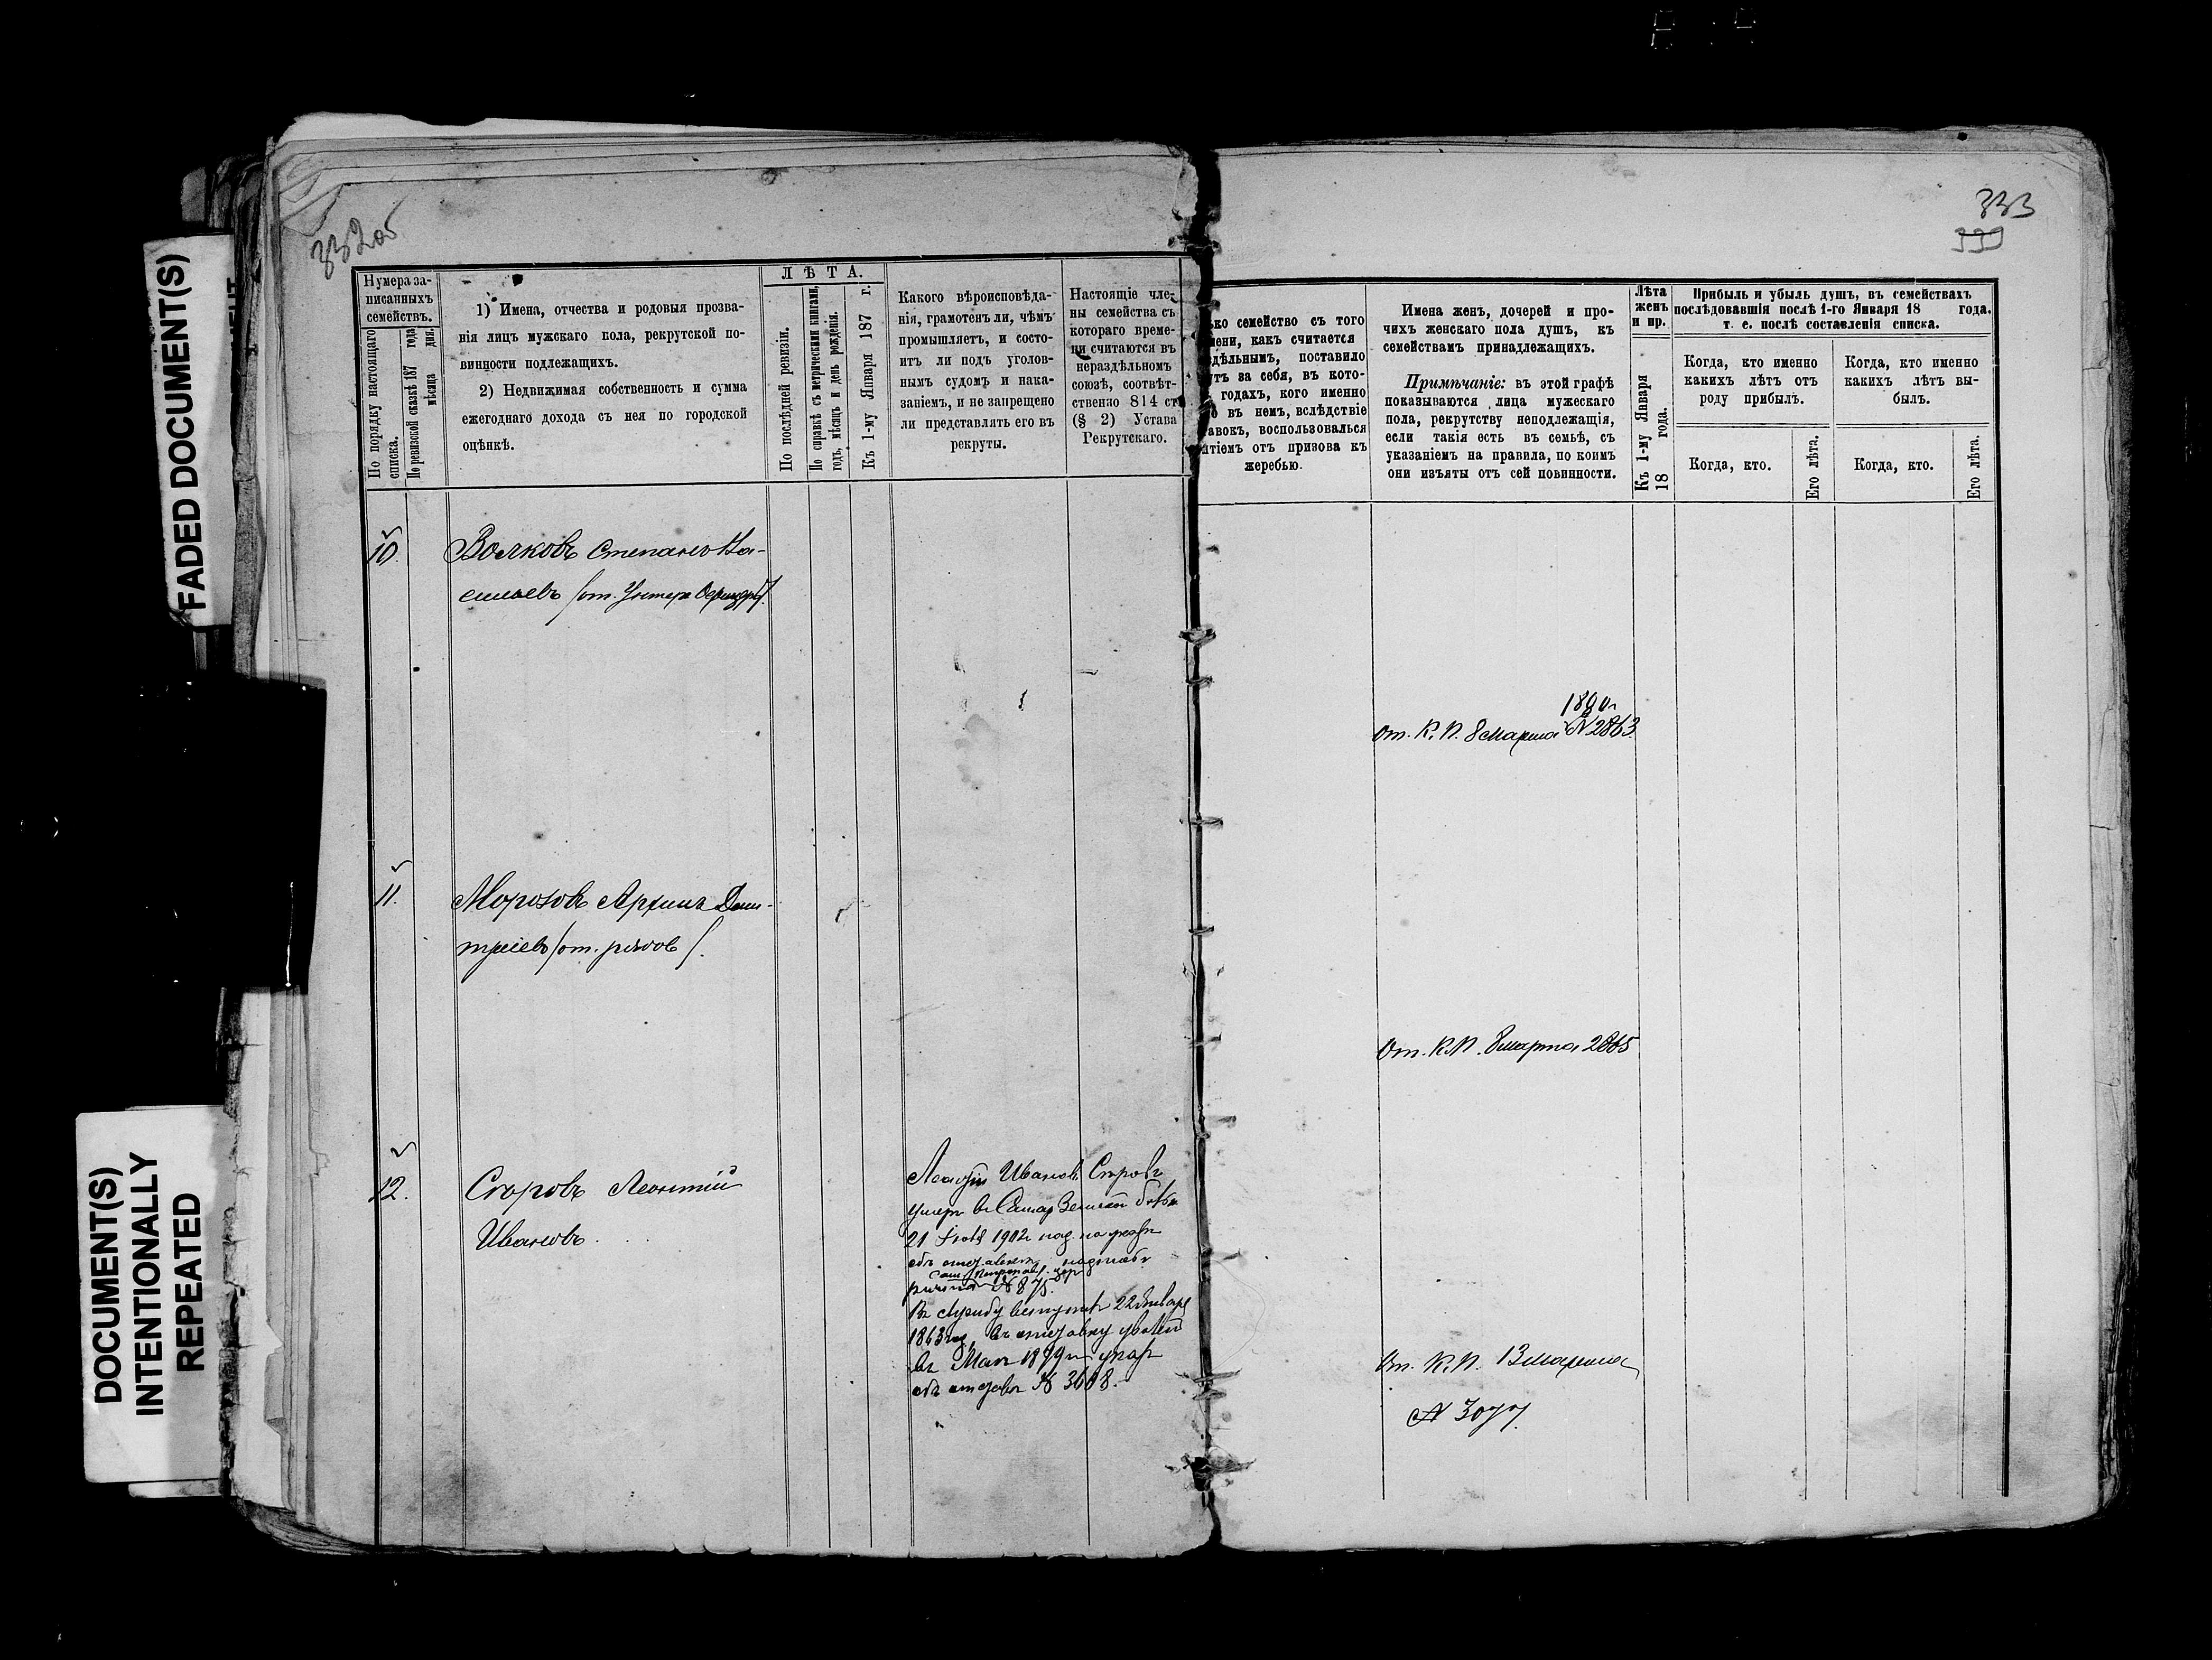 FADED DOCUMENT(S)
DOCUMENT(S)
INTENTIONALLY
REPEATED
332об
333
Нумера за-
писанныхъ
семействъ.
По порядку настоящаго
списка.
По ревизской сказкѣ 187 года
мѣсяца дня.
1) Имена, отчества и родовыя прозва-
нія лицъ мужскаго пола, рекрутской по-
винности подлежащихъ.
2) Недвижимая собственность и сумма
ежегоднаго дохода съ нея по городской
оцѣнкѣ.
ЛѢТА.
По послѣдней ревизіи.
По справкѣ съ метрическими книгами,
годъ, мѣсяцъ и день рожденія.
Къ 1-му Января 187 г.
Какого вѣроисповѣда-
нія, грамотенъ ли, чѣмъ
промышляетъ, и состо-
итъ ли подъ уголов-
нымъ судомъ и нака-
заніемъ, и не запрещено
ли представлять его въ
рекруты.
Настоящіе чле-
ны семейства съ
котораго време-
ни считаются въ
нераздѣльномъ
союзѣ, соотвѣт-
ственно 814 ст
(§ 2) Устава
Рекрутскаго.
ько семейство съ того
мени, какъ считается
дѣльнымъ, поставило
утъ за себя, въ кото-
годахъ, кого именно
въ немъ, вслѣдствіе
авокъ, воспользовался
ятіемъ отъ призова къ
жеребью.
Имена женъ, дочерей и про-
чихъ женскаго пола душъ, къ
семействамъ принадлежащихъ.
Примѣчаніе: въ этой графѣ
показываются лица мужескаго
пола, рекрутству неподлежащія,
если такія есть въ семьѣ, съ
указаніемъ на правила, по коимъ
они изъяты отъ сей повинности.
Лѣта
женъ
и пр.
Къ 1-му Января
18 года.
Прибыль и убыль душъ, въ семействахъ
послѣдовавшія послѣ 1-го Января 18 года.
т. е. послѣ составленія списка.
Когда, кто именно
какихъ лѣтъ отъ
роду прибылъ.
Когда, кто именно
какихъ лѣтъ вы-
былъ.
Когда, кто.
Его лѣта.
Когда, кто.
Его лѣта.
10.
Волковъ Степанъ Ва-
сильевъ (от. Унтеръ Офицеръ).
От. К. П. 8 марта № 2863.
11.
Морозовъ Архипъ Дми-
тріевъ (от. рядов).
От. К. П. 8 марта 2865
12.
Егоровъ Леонтій
Ивановъ.
Леонтій Иванов Егоровъ
умеръ в Самар Земской
21 1902
№ 875.
Въ службу вступилъ 22 Января
1863 год, въ отставку уволен
въ 1879 г. указ
объ отставкѣ № 3608.
От. К. П. 13 марта
№ 3077.